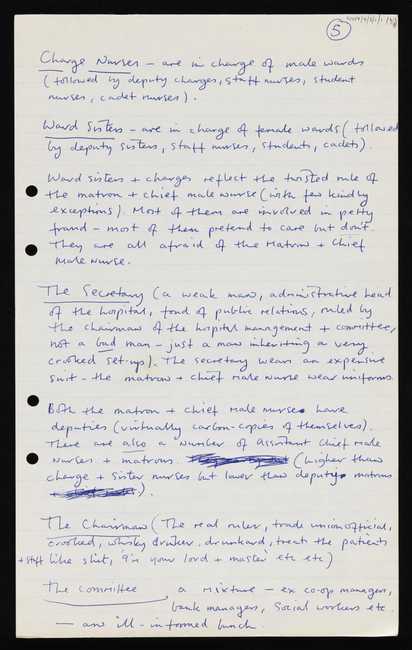 5
Charge Nurses – are in charge of male wards
(followed by deputy charges, staff nurses, student
nurses, cadet nurses).
Ward Sisters – are in charge of female wards (followed
by deputy sisters, staff nurses, students, cadets).
Ward sisters + charges reflect the twisted rule of
the matron + chief male nurse (with few kindly
exceptions). Most of them are involved in petty
fraud – most of them pretend to care but don't.
They are all afraid of the Matron + Chief
Male Nurse.
The Secretary (a weak man, administrative head
of the hospital, fond of public relations, ruled by
the chairman of the hospital management + committee,
not a bad man – just a man inheriting a very
crooked set-up). The secretary wears an expensive
suit – the matron + chief male nurse wear uniforms.
Both the matron + chief male nurse have
deputies (virtually carbon-copies of themselves).
There are also a number of assistant chief male
nurses + matrons (higher than
charge + sister nurses but lower than deputy matrons
).
The Chairman (The real ruler, trade union official,
crooked, whisky drinker, drunkard, treat the patients
+ staff like shit, 'I'm your lord + master etc etc)
The Committee a mixture – ex co-op managers,
bank managers, social workers etc.
— an ill-informed bunch.